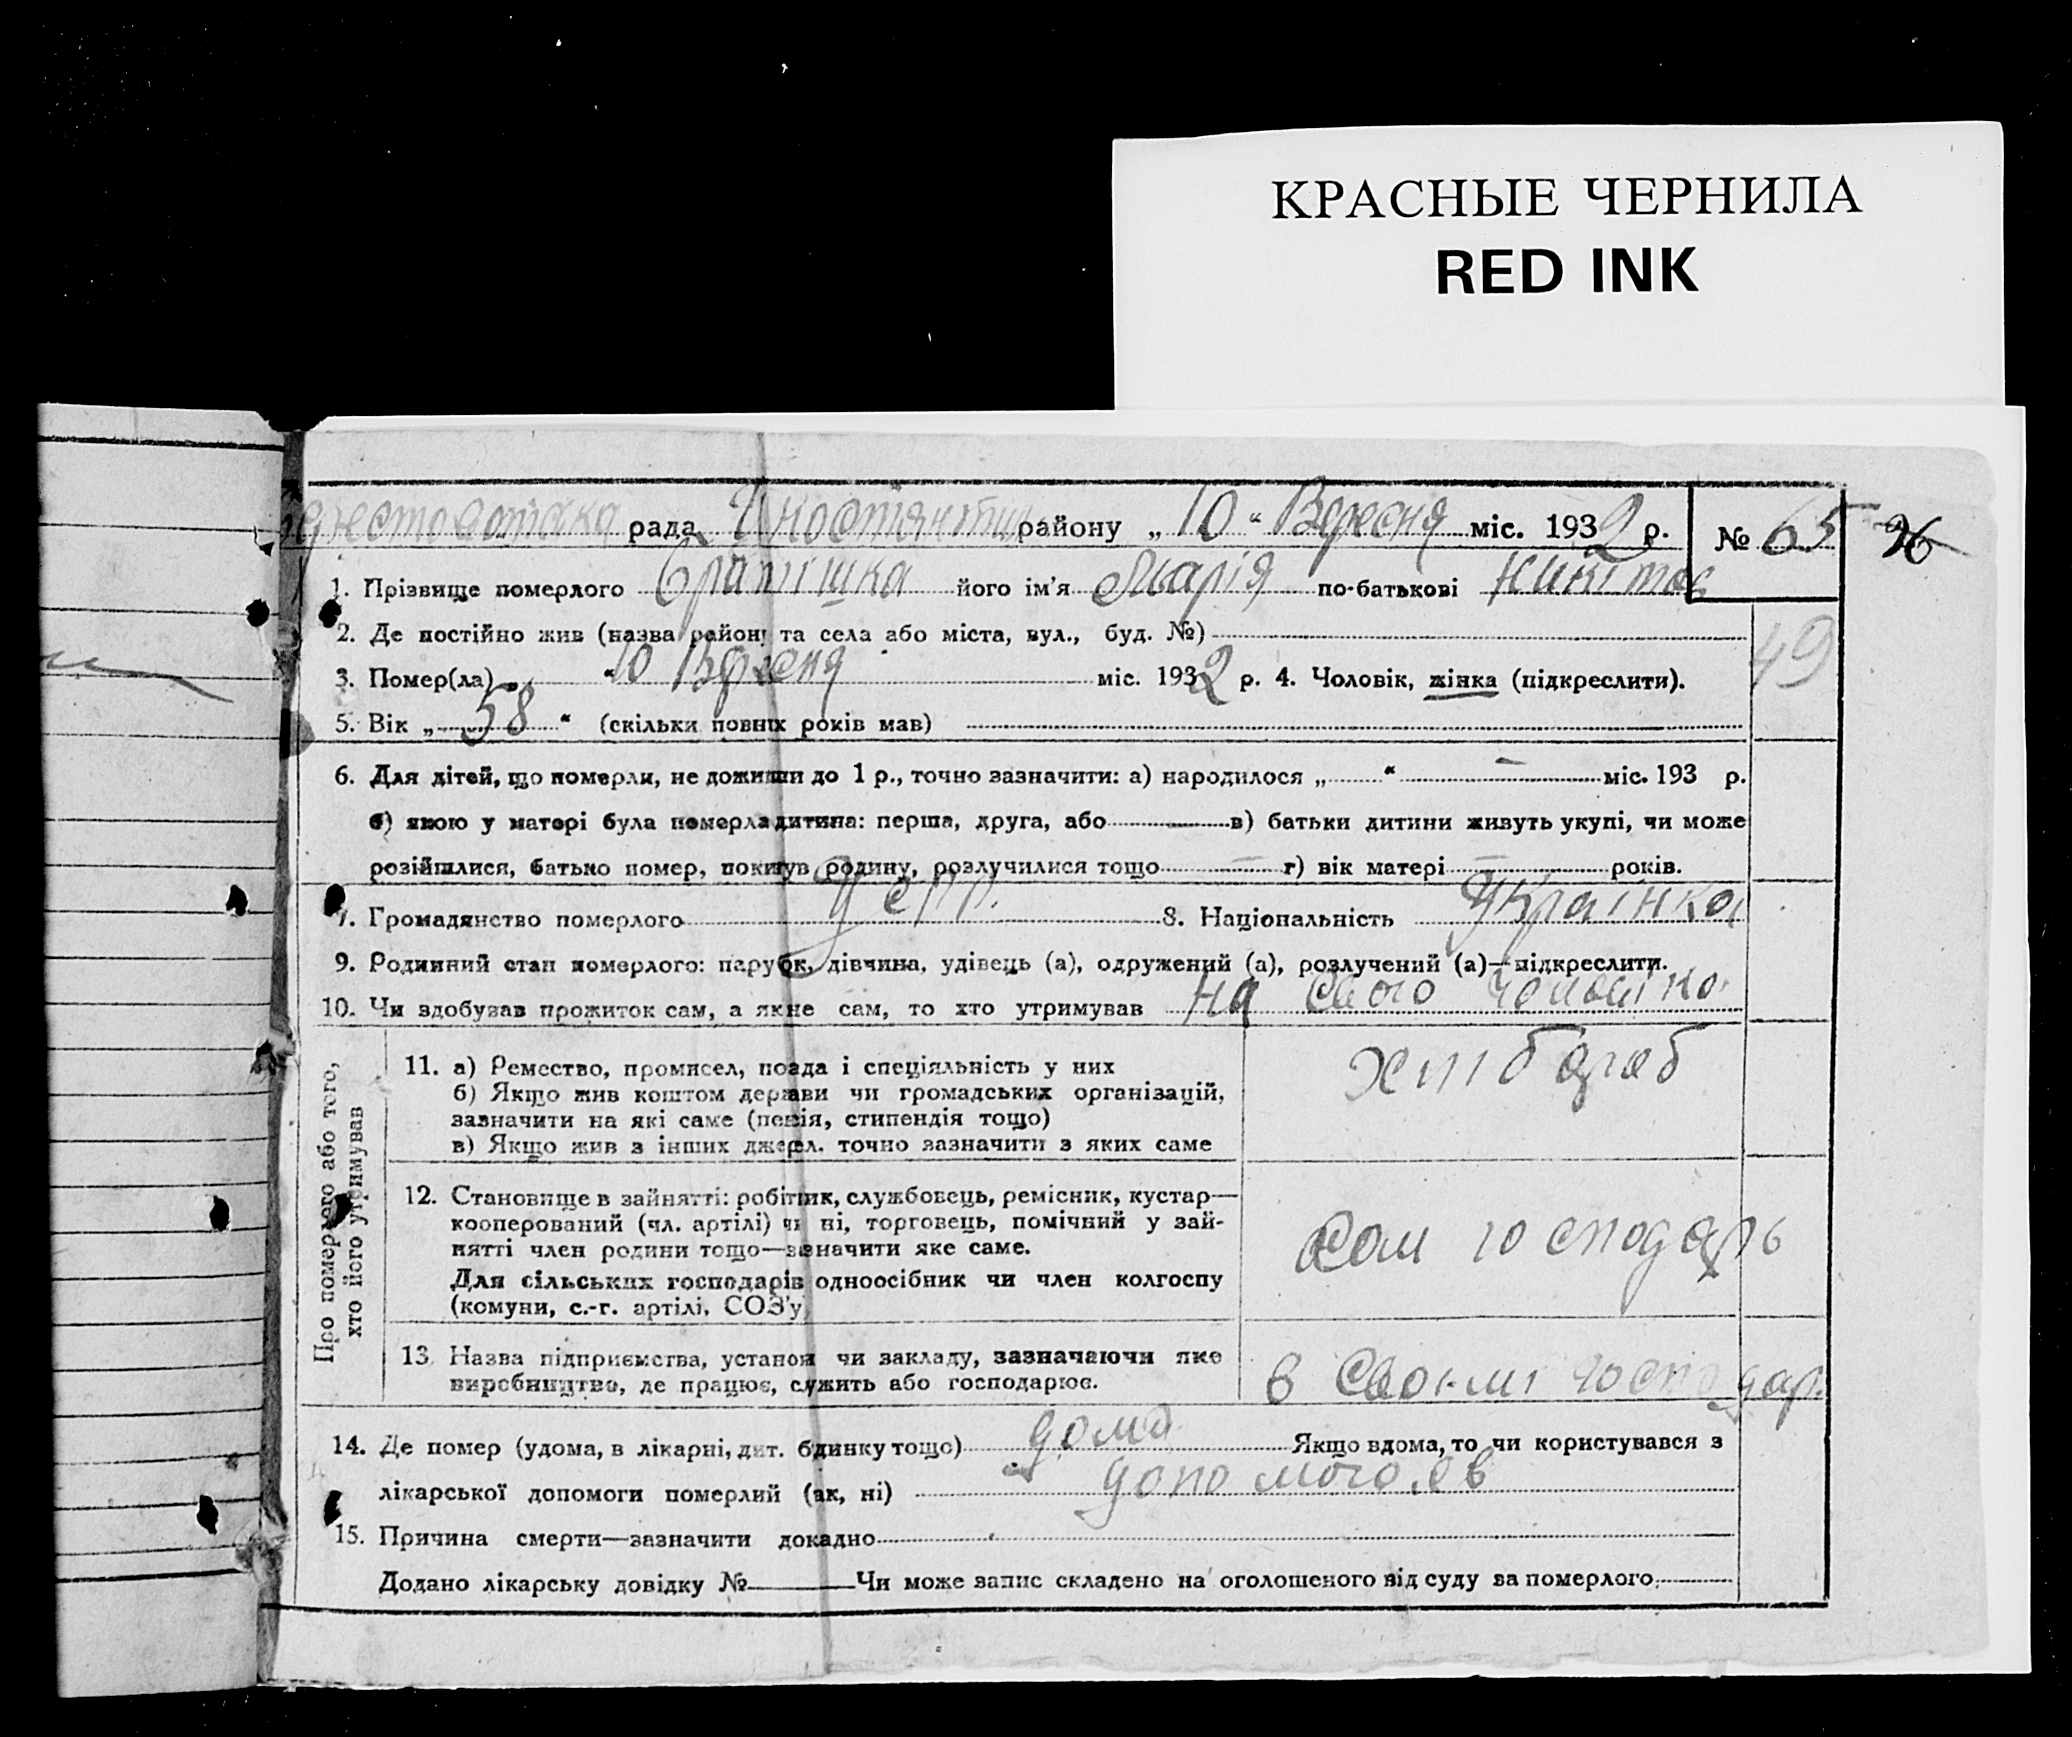 КРАСНЫЕ ЧЕРНИЛА
RED INK
рада района „ 10 “ Вересня міс. 1932 р. № 65 96
1. Прізвище померлого його ім'я Марія по-батькові Никітов
2. Де постійно жив (назва району та села або міста, вул., буд. №)
49
3. Помер(ла) „ 10 Вересня міс. 1932 р. 4. Чоловік, жінка (підкреслити).
5. Вік „ 58 “ (скільки повних років мав)
6. Для дітей, що померли, не доживши до 1 р., точно зазначити: а) народилося „ “ — міс. 193 р.
б) якою у матері була померла дитина: перша, друга, або — в) батьки дитини живуть укупі, чи може
розійшлися, батько помер, покинув родину, розлучилися тощо — г) вік матері — років.
7. Громадянство померлого 8. Національність Українка
9. Родинний стан померлого: парубок, дівчина, удівець (а), одружений (а), розлучений (а)—підкреслити.
10. Чи здобував прожиток сам, а як не сам, то хто утримував на свого чоловіка
Про померлого або того,
хто його утримував
11. а) Ремество, промисел, посада і спеціяльність у них
б) Якщо жив коштом держави чи громадських організацій,
зазначити на які саме (пенсія, стипендія тощо)
в) Якщо жив з інших джерел. точно зазначити з яких саме
хлібороб
12. Становище в зайнятті: робітник, службовець, ремісник, кустар—
кооперований (чл. артілі) чи ні, торговець, помічний у зай-
нятті член родини тощо—зазначити яке саме.
Для сільських господарів одноосібник чи член колгоспу
(комуни, с.-г. артілі, СОЗ'у)
сам господарь
13. Назва підприємства, установи чи закладу, зазначаючи яке
виробництво, де працює, служить або господарює.
в своїм господар.
14. Де помер (удома, в лікарні, дит. будинку тощо) дома Якщо вдома, то чи користувався з
лікарської допомоги померлий (так, ні)
15. Причина смерти—зазначити докладно
Додано лікарську довідку № Чи може запис складено на оголошеного від суду за померлого